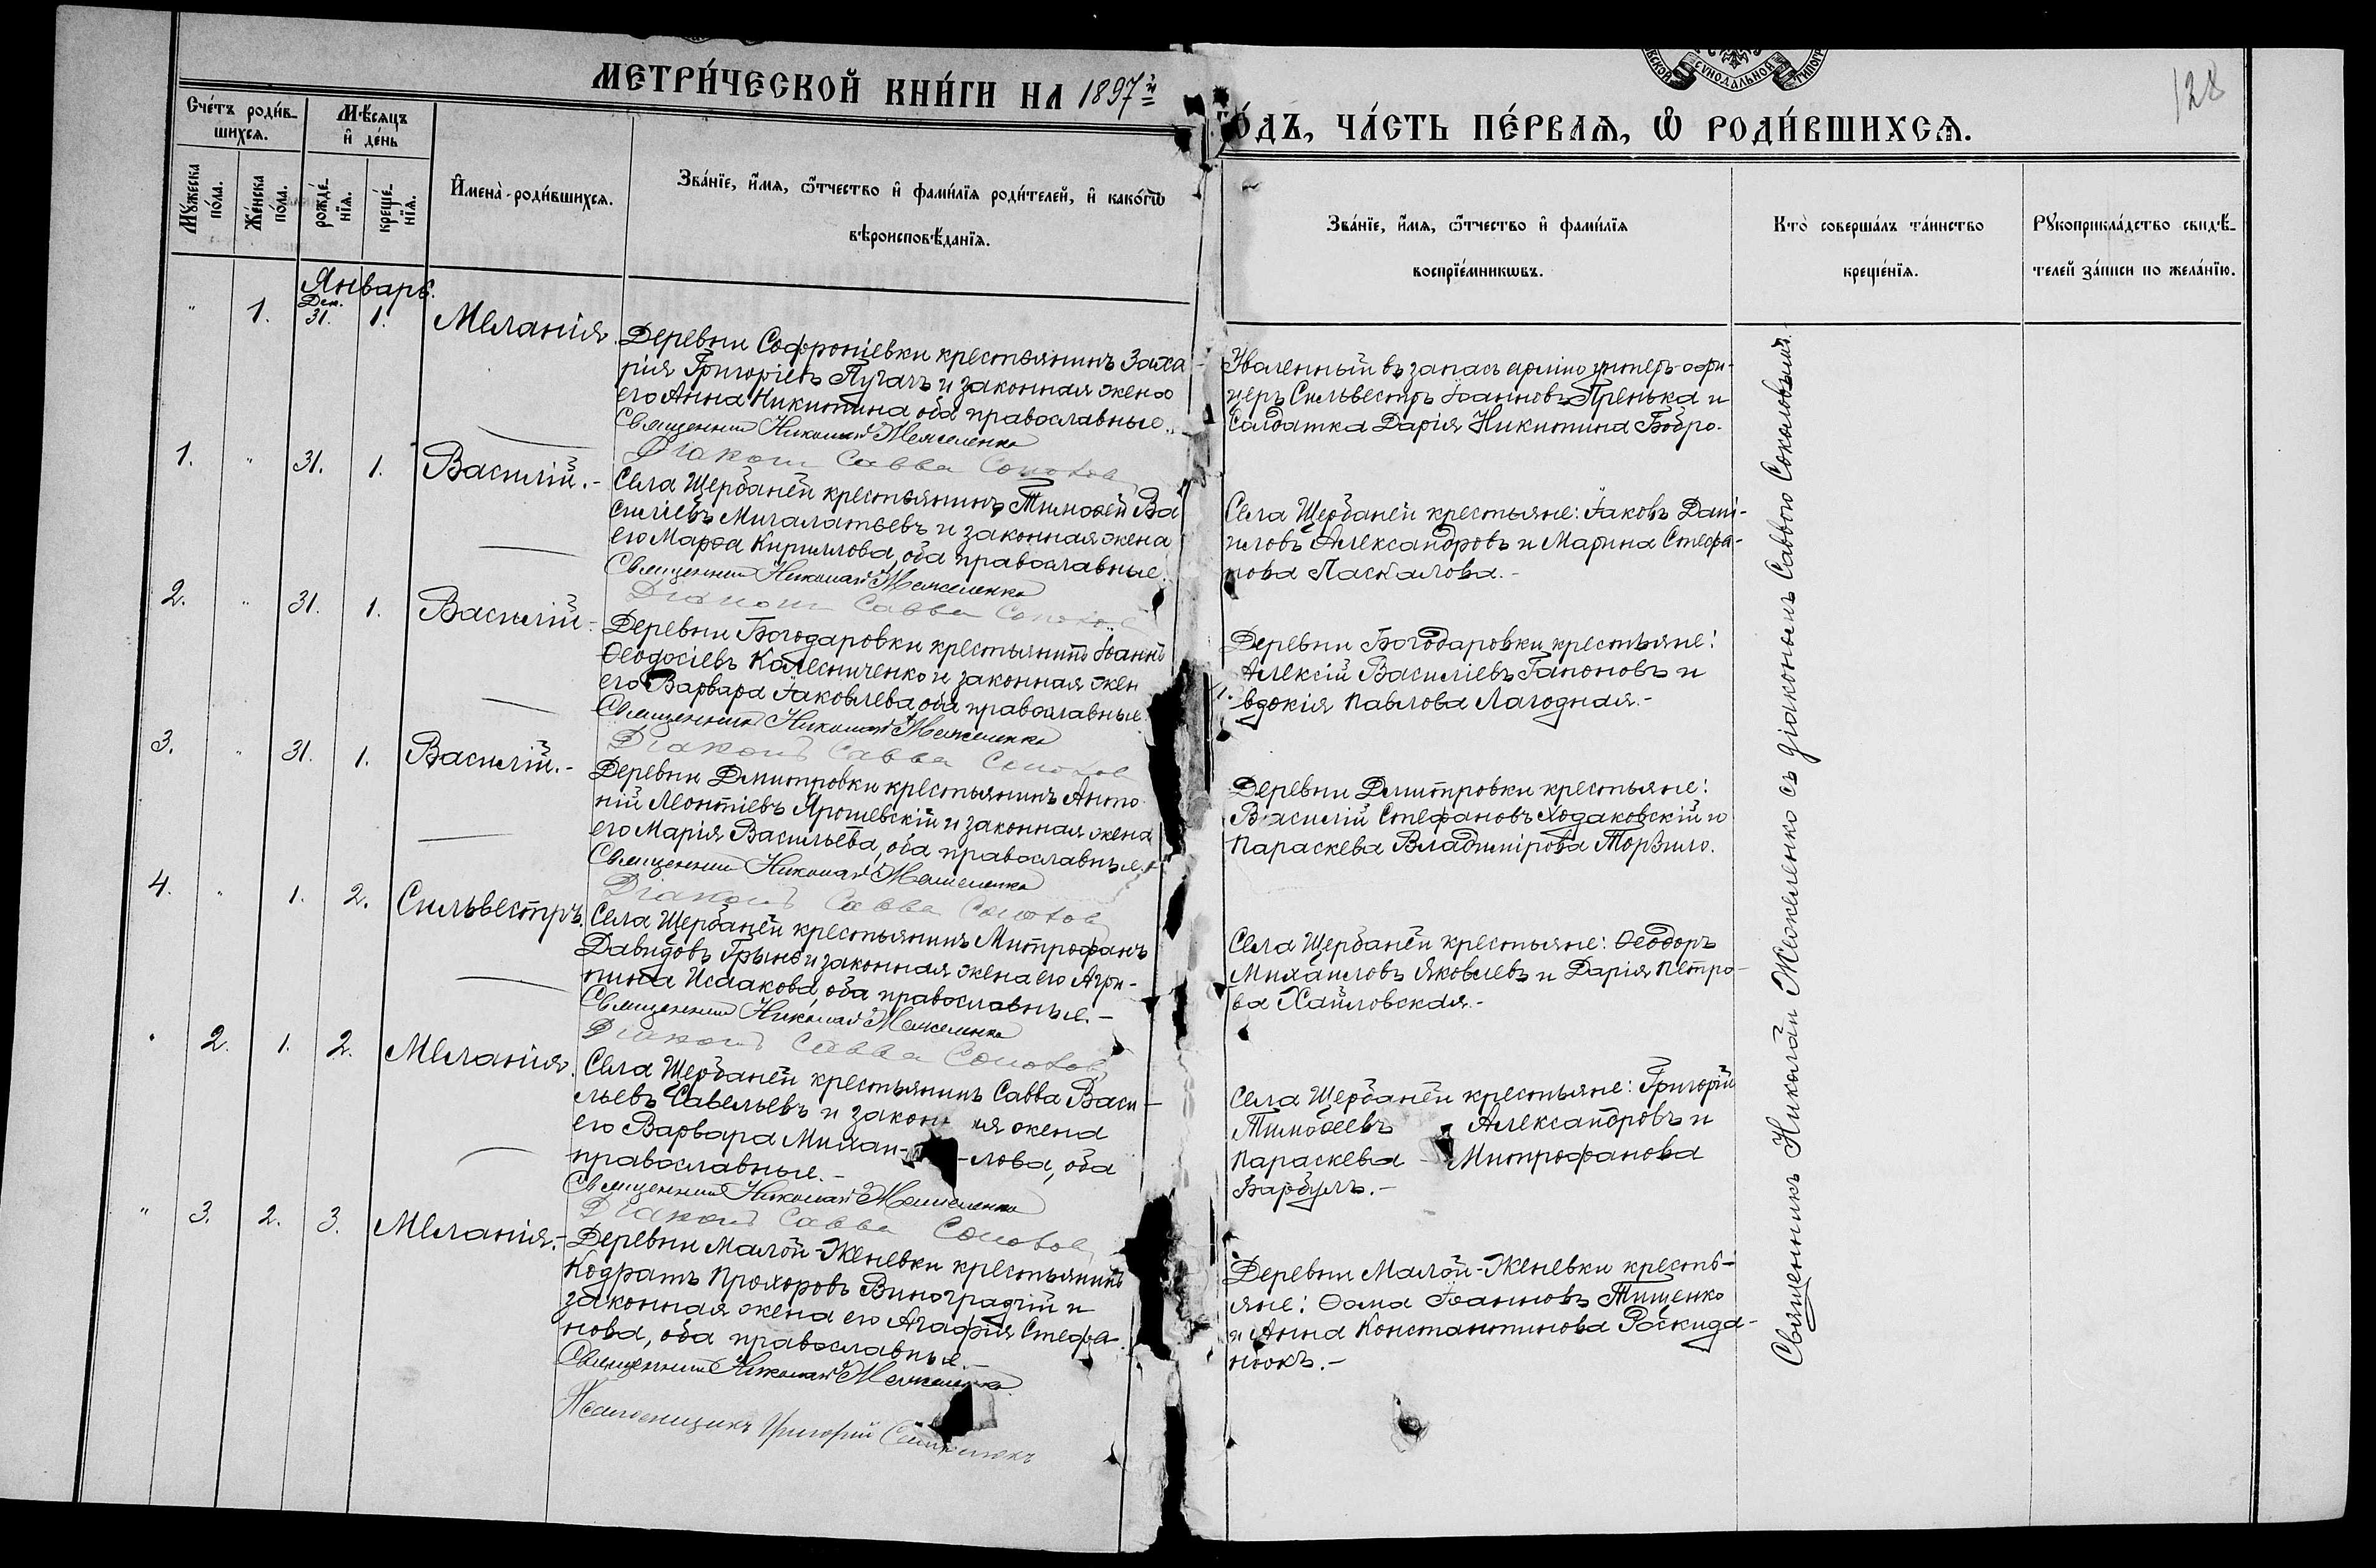 МЕТРИ́ЧЕСКОЙ КНИ́ГИ НА 1897й
ГО́ДЪ, ЧА́СТЬ ПЕ́РВАѦ, Ѡ҆ РОДИ́ВШИХСѦ.
128
Сче́тъ роди́в-
шихсѧ.
Мѣ́сѧцъ
и҆ де́нь
Мꙋ́жеска
по́ла.
Же́нска
по́ла.
рожде́-
нїѧ.
креще́-
нїѧ.
И҆мена̀ роди́вшихсѧ.
Зва́нїе, и҆́мѧ, ѻ҆́тчество и҆ фами́лїѧ роди́телей, и҆ како́гѡ
вѣроисповѣ́данїѧ.
Зва́нїе, и҆́мѧ, ѻ҆́тчество и҆ фами́лїѧ
воспрїе́мникѡвъ.
Кто̀ соверша́лъ та́инство
креще́нїѧ.
Рꙋкоприкла́дство свидѣ́-
телей за́писи по жела́нїю.
Январь.
" 1. Дек. 31. 1. Меланія.
Деревни Софроніевки крестьянинъ Заха-
рія Григоріевъ Пугачъ и законная жена
его Анна Никитина оба православные.
Священникъ Николай Межеленко
Діаконъ Савва
Уволенный въ запасъ арміи унтеръ-офи-
церъ Сильвестръ Іоанновъ Пренька и
Солдатка Дарія Никитина Бобро.
1. " 31. 1. Василій.-
Села Щербаней крестьянинъ Тимофей Ва
силіевъ Мигалатьевъ и законная жена
его Марфа Кириллова, оба православные.
Священникъ Николай Межеленко
Діаконъ Савва
Села Щербаней крестьяне: Іаковъ Дані-
иловъ Александровъ и Марина Стефа-
нова Паскалова.-
2. " 31. 1. Василій-
Деревни Богодаровки крестьянинъ Іоаннъ
Ѳеодосіевъ Калесниченко и законная жен
его Варвара Іаковлева, оба православные.
Священникъ Николай Межеленко
Діаконъ Савва
Деревни Богодаровки крестьяне:
Алексій Василіевъ Гапоновъ и
вдокія Павлова Лагодная.-
3. " 31. 1. Василій.-
Деревни Дмитровки крестьянинъ Анто
ній Леонтіевъ Ярошевскій и законная жена
его Марія Васильева, оба православные.
Священникъ Николай Межеленко
Діаконъ Савва
Деревни Дмитровки крестьяне:
Василій Стефановъ Ходаковскій и
Параскева Владимірова
4. " 1. 2. Сильвестръ.
Села Щербаней крестьянинъ Митрофанъ
Давидовъ и законная жена его Агри-
пина Исаакова, оба православные.-
Священникъ Николай Межеленко
Діаконъ Савва
Села Щербаней крестьяне: Ѳеодоръ
Михаиловъ Яковлевъ и Дарія Петро-
ва Хайловская.-
" 2. 1. 2. Меланія.
Села Щербаней крестьянинъ Савва Васи-
льевъ Савельевъ и закон ая жена
его Варвара Михаи- -лова, оба
православные.-
Священникъ Николай Межеленко
Діаконъ Савва
Села Щербаней крестьяне: Григорій
Тимоѳеевъ Александровъ и
Параскева Митрофанова
Барбулъ.-
" 3. 2. 3. Меланія.-
Деревни Малой-Женевки крестьянинъ
Кодратъ Прохоровъ Виноградчій и
законная жена его Агафія Стефа-
нова, оба православные.-
Священникъ Николай Межеленко
Псаломщикъ Григорій
Деревни Малой-Женевки кресть-
яне: Ѳома Іоанновъ Тищенко
и Анна Константинова Роскида-
нюкъ.-
Священникъ Николай Межеленко съ діакономъ Саввою Соколовымъ.